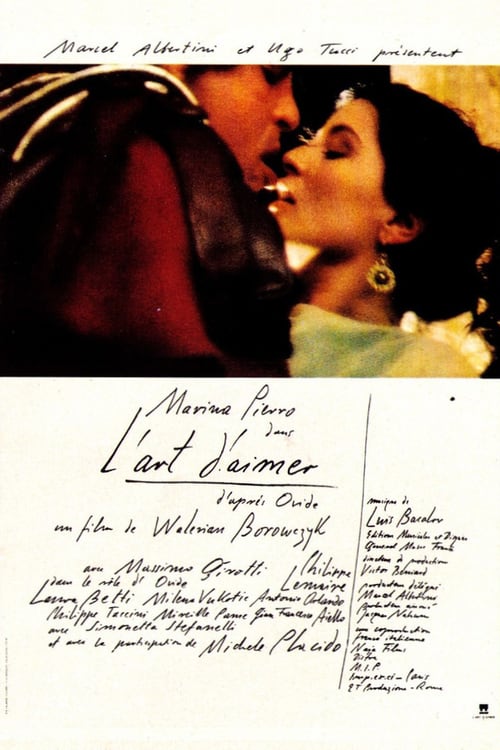 Marcel Albertini et Ugo Tucci présentent
Marina Pierro
dans
L'art d'aimer
d'après Ovide
un film de Walerian Borowczyk
avec Massimo Girotti
dans le rôle d'Ovide
Philippe
Lemaire
Laura Betti Milena Vukotic Antonio Orlando
Philippe Taccini Mireille Pame Gian Francesco Aiello
avec Simonetta Stefanelli
et avec la participation de Michele Placido
musique de
Luis Bacalov
Editions Musicales et Disques
General Music France
directeur de production
Victor Beniard
producteur délégué
Marcel Albertini
Producteur associé
Jacques Nahum
une coproduction
franco italienne
Naja Films
Distra
M.I.P.
Imp.ex.ci - Paris
2T Produzione - Rome